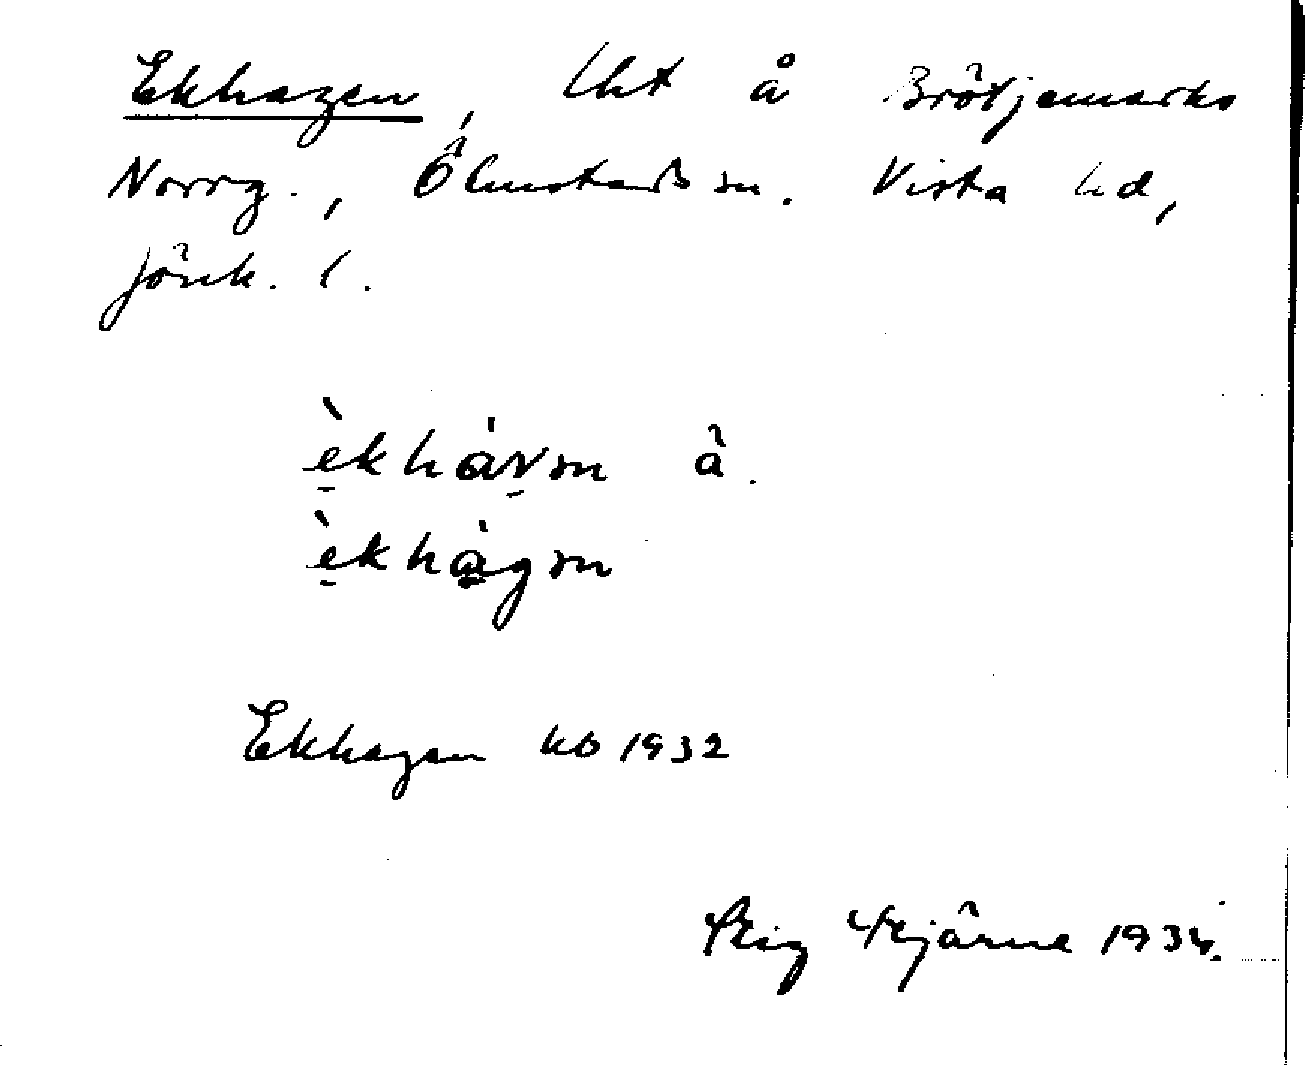 Ekhagen, lht å Brötjemarks
Norrg., Ölmstads sn. Vista hd,
Jönk. l.
è̱khávm ä.
è̱khàgm
Ekhagen kb 1932
Stig Stjärne 1934.